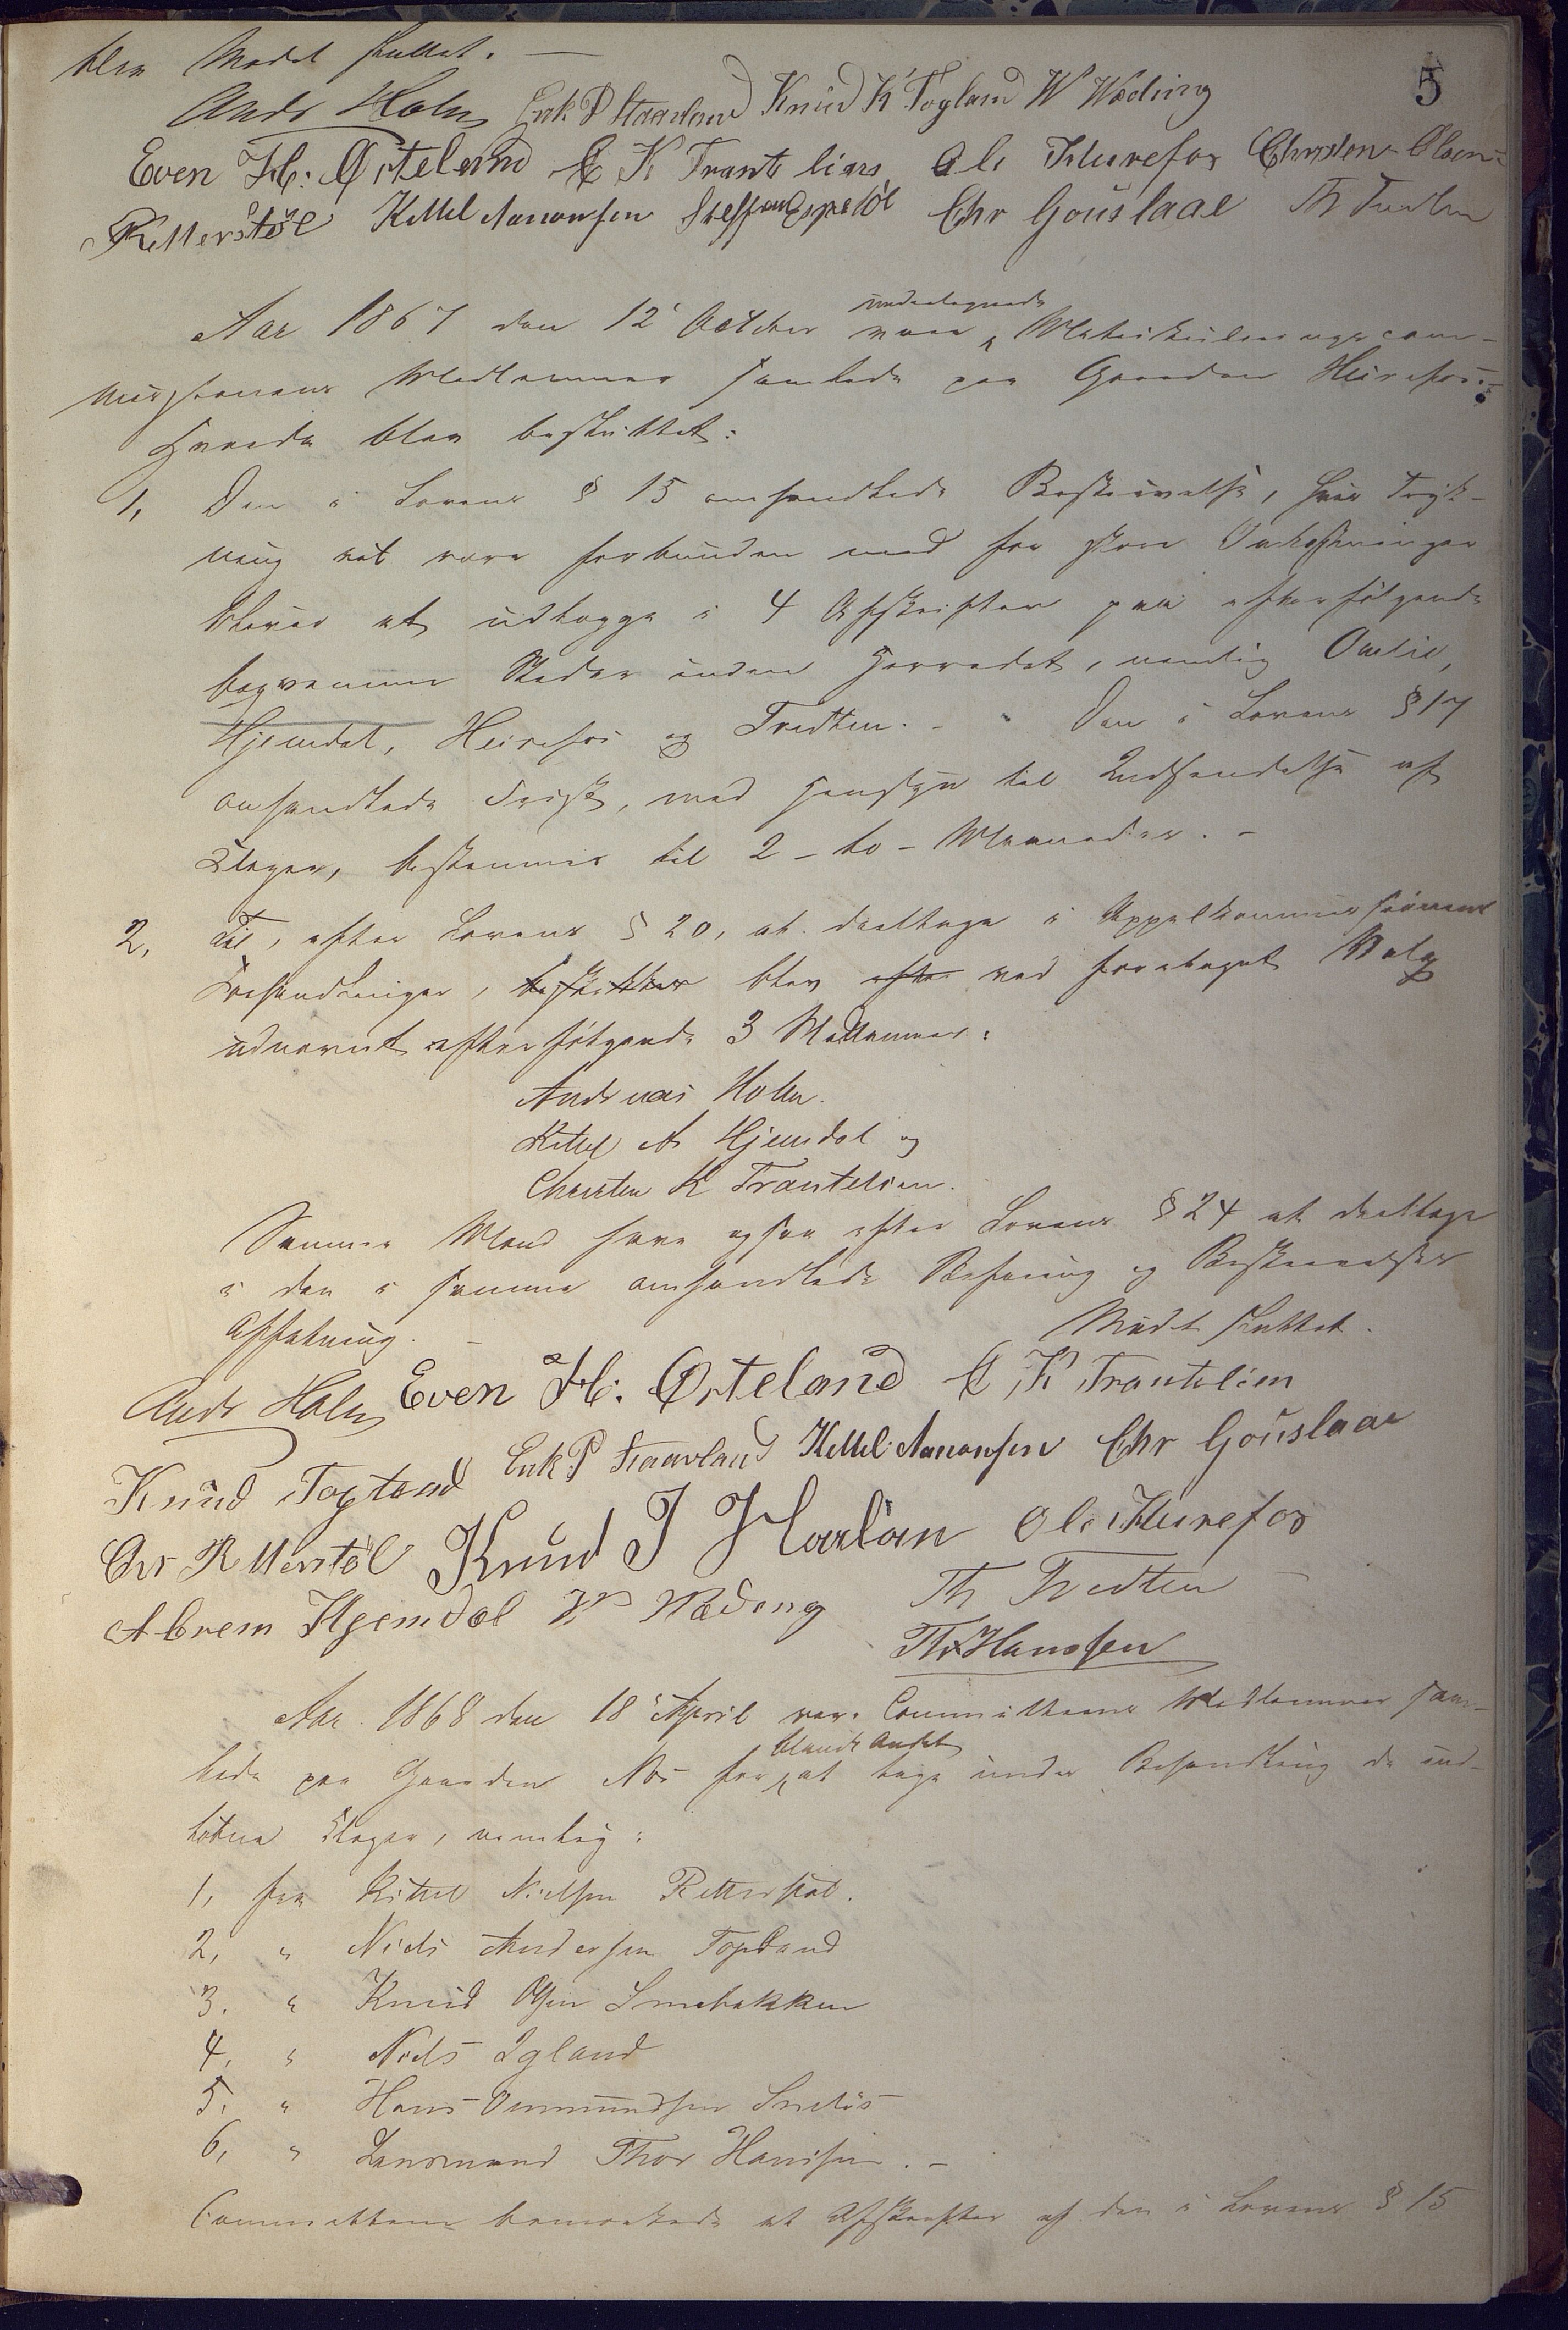 blev Mødet sluttet. —
5
Andr Holm Erik P Staavland Knud K Topland W Wæding
Even H: Ørteland C K Trantelien Ole Heurefos Christen Olsen
Retterstöl Kittel Aanonsen Steffen Espestöl Chr Gouslaae Th Tredten
Aar 1867 den 12' October vare undertegnede Matrikuleringscom-
missionens Medlemmer samlede paa Gaarden Heurefos.
Hvorda blev besluttet:
1, Den i Lovens § 15 omhandlede Beskrivelse, hvis Tryk-
ning vil være forbunden med for store Omkostninger
bliver at udlægge i 4 Afskrifter paa efterfølgende
beqvemme Steder inden Herredet, nemlig Omlie,
Hjemdal, Heurefos og Tredten. - Den i Lovens § 17
omhandlede Frist, med Hensyn til Indsendelse af
Klager, bestemmes til 2 - to - Maaneder. -
2, Til, efter Lovens § 20, at deeltage i Appelkommissionens
Forhandlinger, beskikkes blev efter ved foretaget Valg
udnævnt efterfølgende 3 Medlemmer:
Andreas Holm.
Kittel A Hjemdal og
Christen K Trantelien.
Samme Mænd have ogsaa efter Lovens § 24 at deeltage
i den i samme omhandlede Befaring og Beskrivelses
Affatning. - Mødet sluttet.
Andr Holm Even H: Ørteland C K Trantelien
Knud Topland Erik P Staavland Kittel Aanonsen Chr Gouslaae
Chr Retterstöl Knud J Harlan Ole Heurefos
Abrem Hjemdal W Wæding Th Tredten
Th Hanssen
Aar 1868 den 18' April vare Committeens Medlemmer sam-
lede paa Gaarden Nøs for blandt Andet at tage under Behandling de ind-
løbne Klager, nemlig:
1, fra Kittel Nielsen Retterstöl.
2, " Niels Andersen Topland
3, " Knud Olsen Smebakken
4, " Niels Igland
5, " Hans Ommundsen
6, " Lensmand Thor Hanssen. -
Committeen bemærkede at Afskrifter af den i Lovens § 15